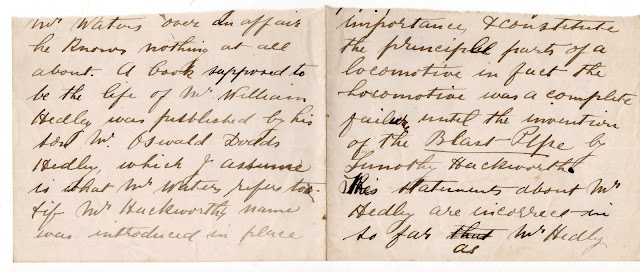 Mr Waters over an affair
he knows nothing at all
about. A book supposed to
be the life of Mr William
Hedley was published by his
son Mr Oswald Dodds
Hedley, which I assume
is what Mr Waters refers to
& if Mr Hackworths name
was introduced in place
importance, & constitute
the principle parts of a
locomotive in fact the
Locomotive was a complete
failure until the invention
of the Blast-Pipe by
Timothy Hackworth.
The statements about Mr
Hedley are incorrect in
so far that as Mr Hedly